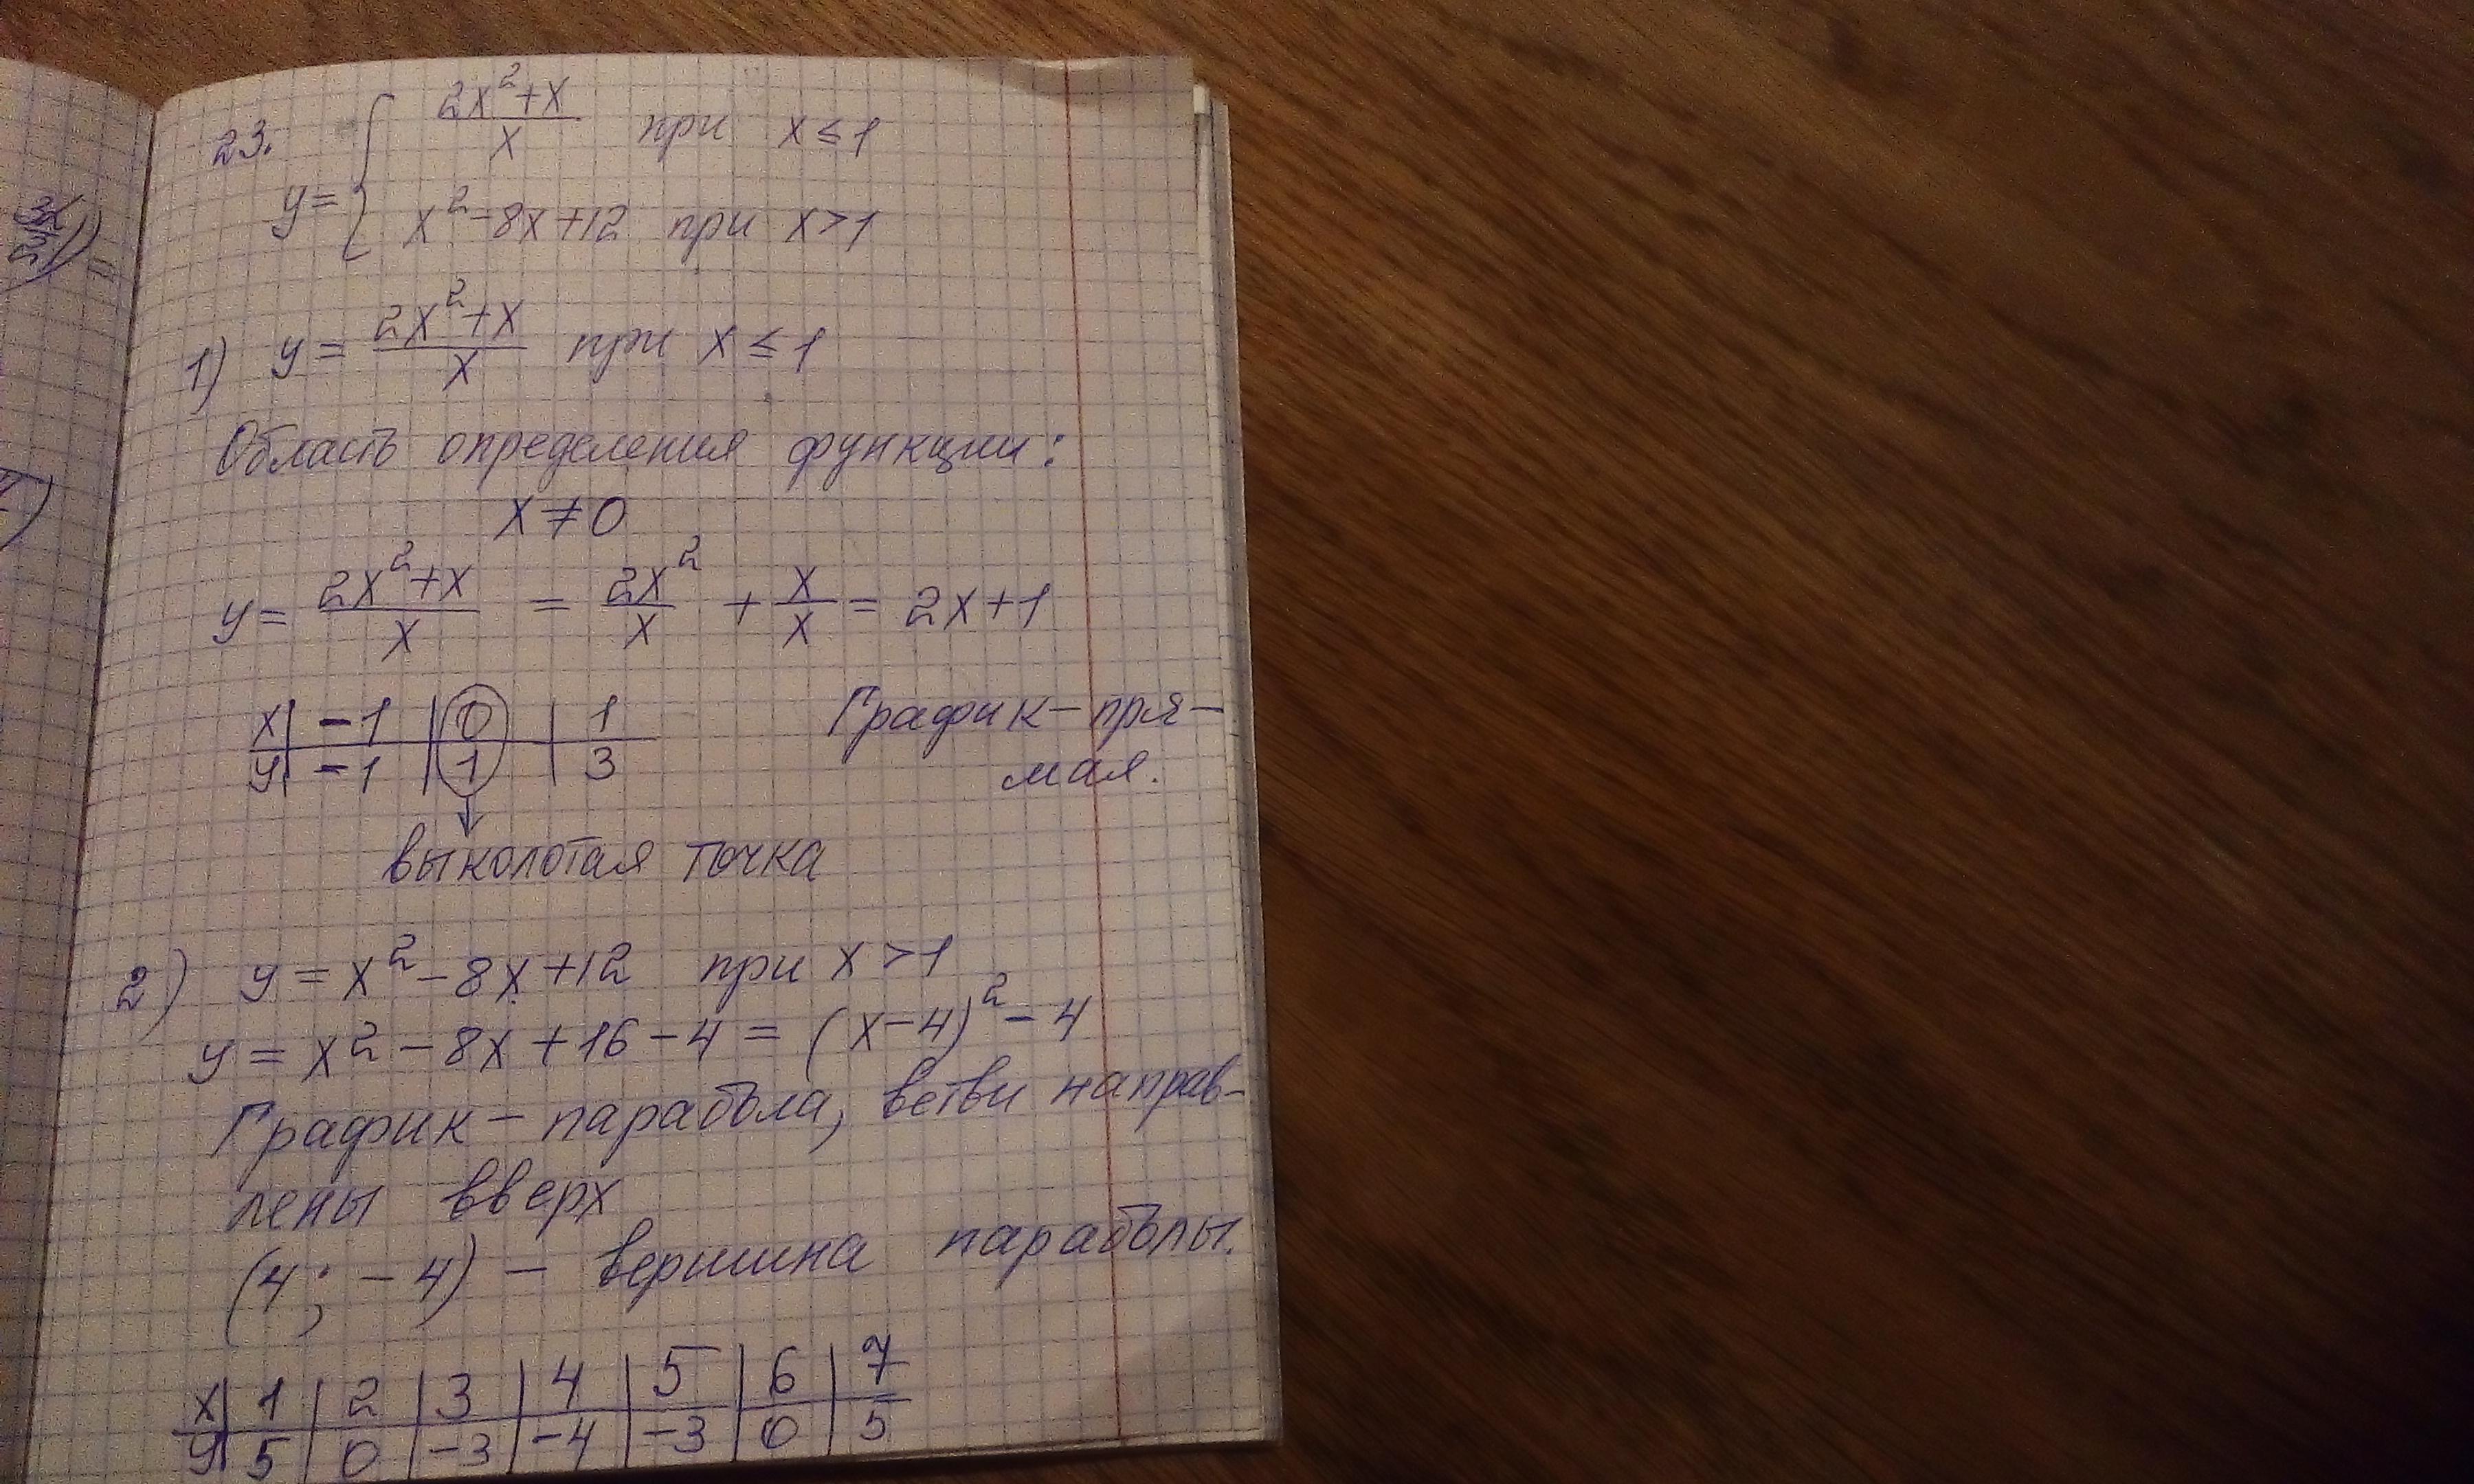 23.
y = { (2x²+x)/x при x ≤ 1
x² - 8x + 12 при x > 1
1) y = (2x²+x)/x при x ≤ 1
Область определения функции:
x ≠ 0
y = (2x²+x)/x = 2x²/x + x/x = 2x + 1
x | -1 | 0 | 1
y | -1 | 1 | 3
График - пря-
мая.
выколотая точка
2) y = x² - 8x + 12 при x > 1
y = x² - 8x + 16 - 4 = (x-4)² - 4
График - парабола, ветви направ-
лены вверх
(4; -4) - вершина параболы.
x | 1 | 2 | 3 | 4 | 5 | 6 | 7
y | 5 | 0 | -3 | -4 | -3 | 0 | 5